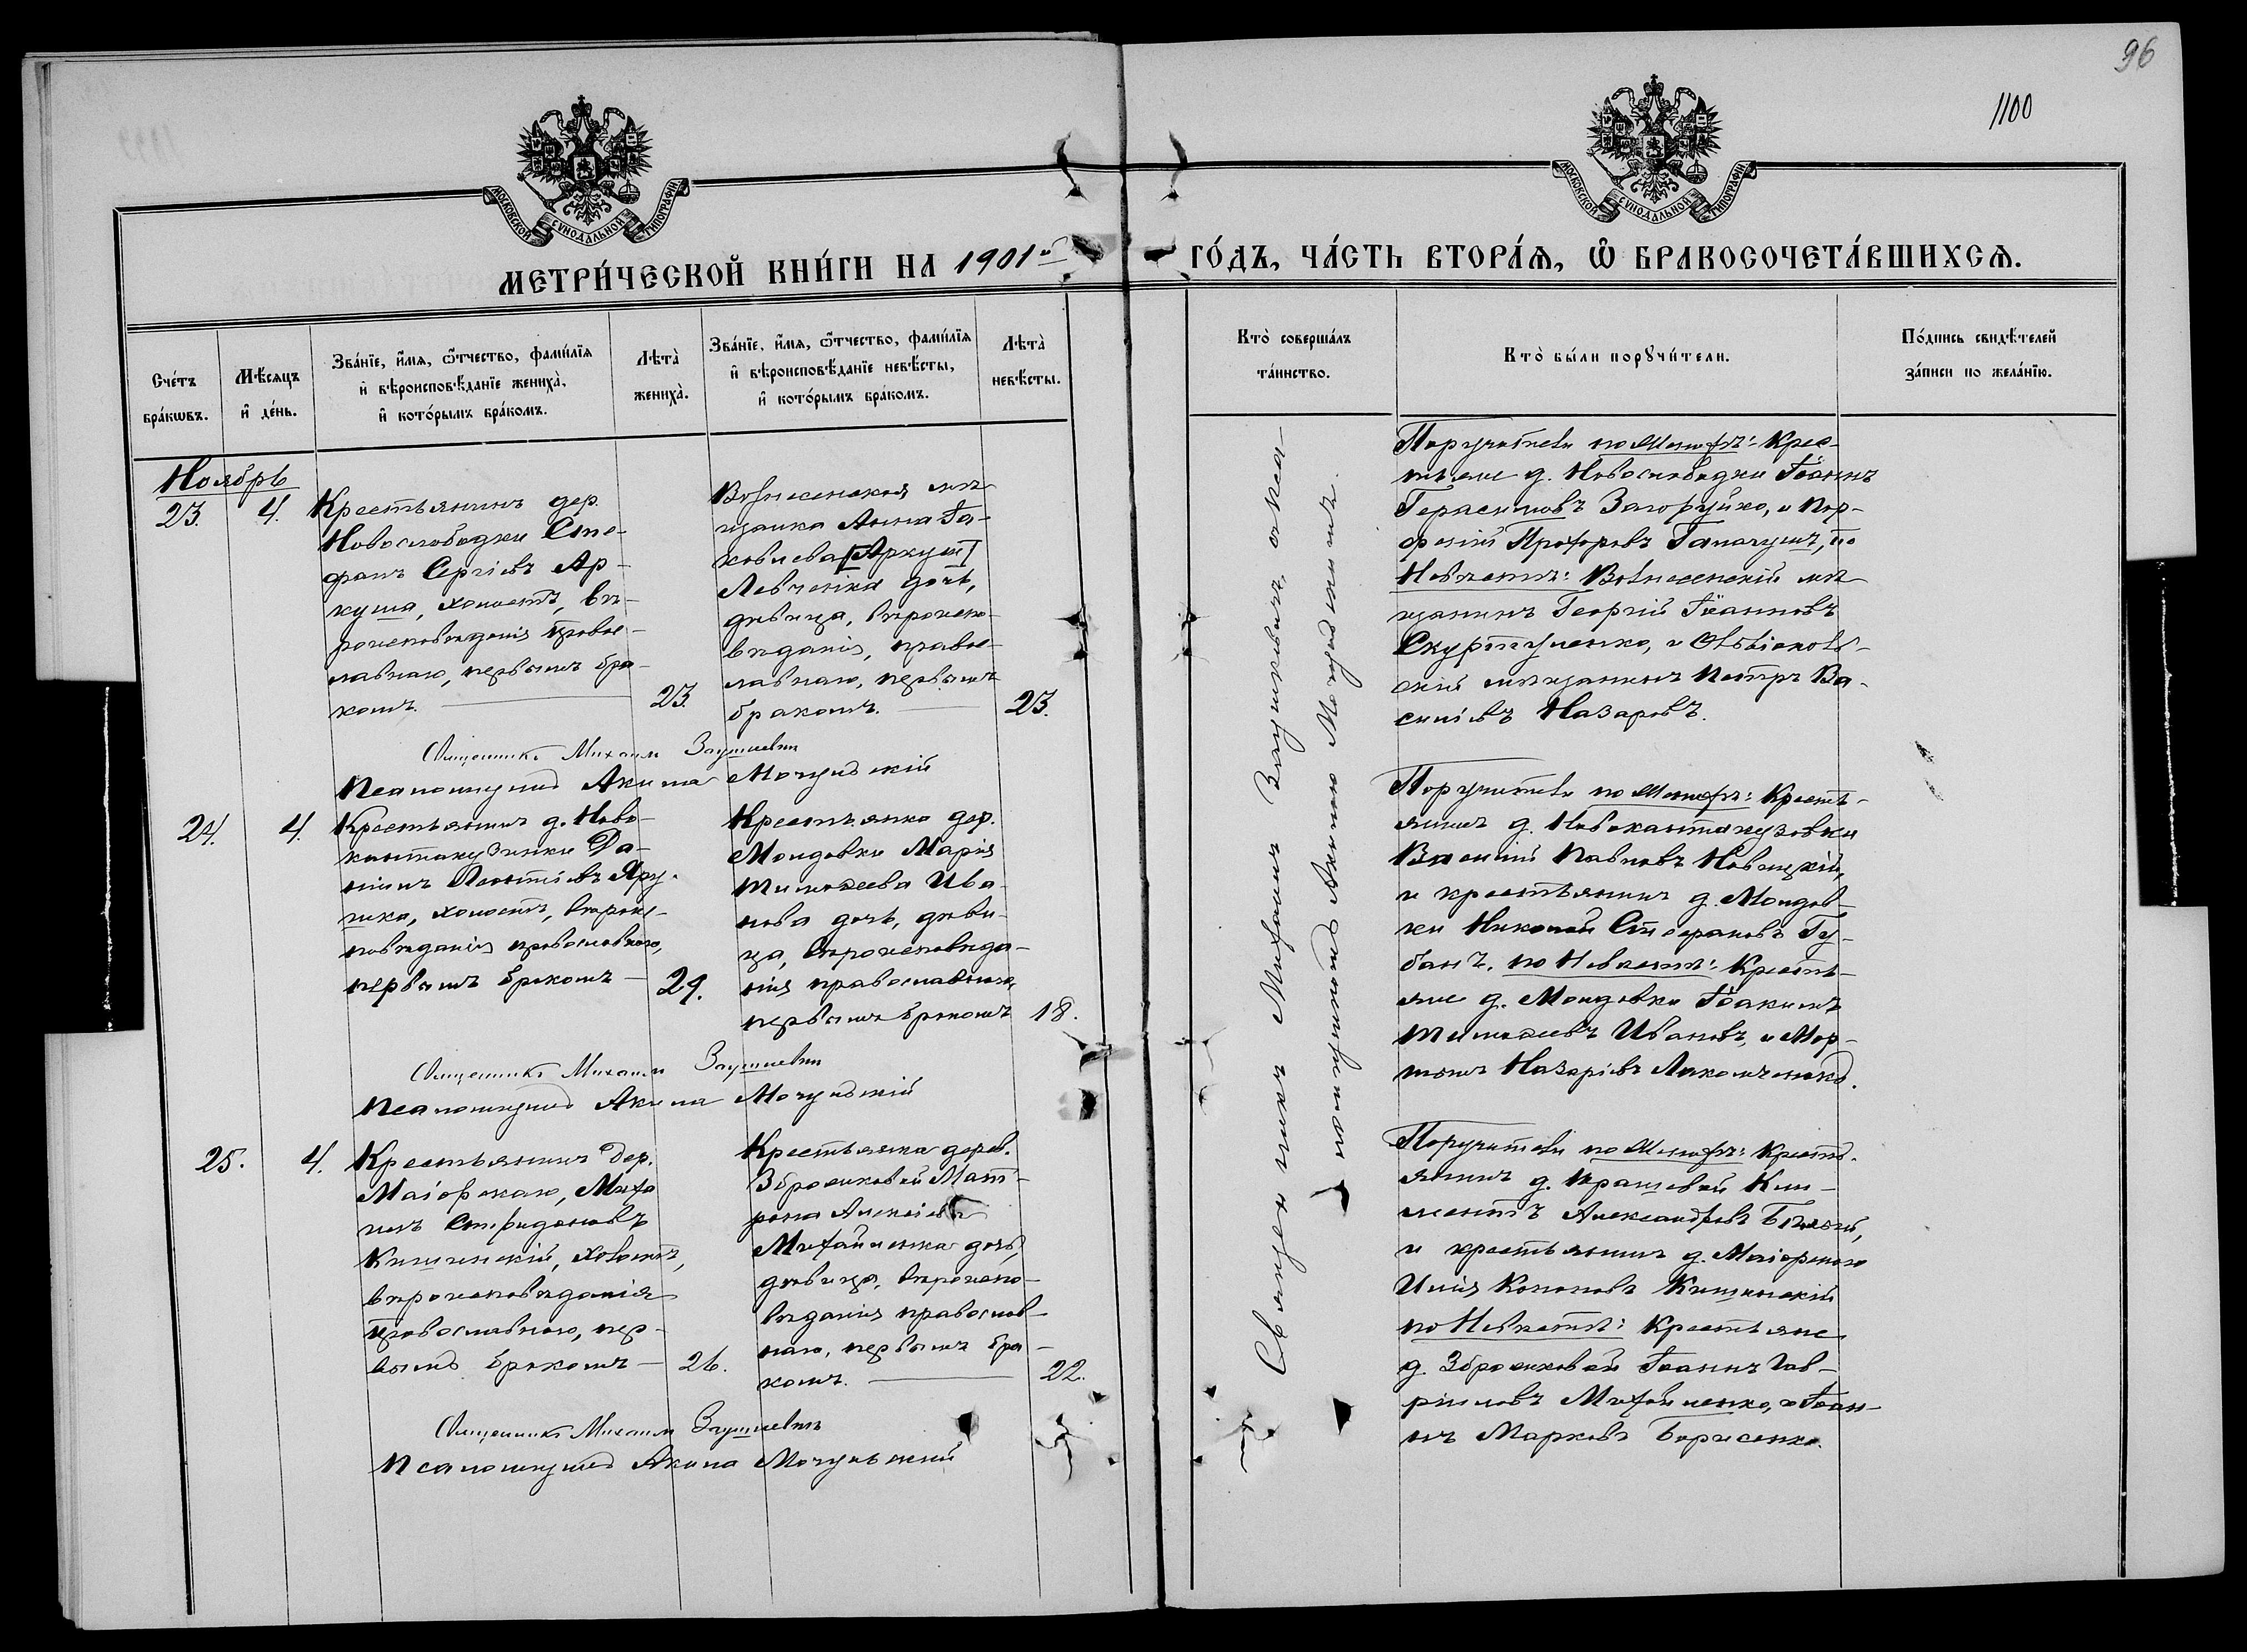 96
1100
МОСКОВСКОЙ СѴНОДАЛЬНОЙ ТИПОГРАФІИ
МОСКОВСКОЙ СѴНОДАЛЬНОЙ ТИПОГРАФІИ
МЕТРИ́ЧЕСКОЙ КНИ́ГИ НА 1901й ГО́ДЪ, ЧА́СТЬ ВТОРА́Ѧ, Ѽ БРАКОСОЧЕТА́ВШИХСѦ.
Сче́тъ бра́кѡвъ.
Мѣ́сѧцъ и҆ де́нь.
Зва́нїе, и҆́мѧ, ѻ҆́тчество, фами́лїѧ и҆ вѣроисповѣ́данїе жениха̀, и҆ кото́рымъ бра́комъ.
Лѣта̀ жениха̀.
Зва́нїе, и҆́мѧ, ѻ҆́тчество, фами́лїѧ и҆ вѣроисповѣ́данїе невѣ́сты, и҆ кото́рымъ бра́комъ.
Лѣта̀ невѣ́сты.
Кто̀ соверша́лъ та́инство.
Кто̀ бы́ли порꙋчи́тели.
По́дпись свидѣ́телей за́писи по жела́нїю.
Ноябрь
23.
4.
Крестьянинъ дер.
Новослободки Сте-
фанъ Сергіевъ Ар-
куша, холостъ, вѣ-
роисповѣданія право-
славнаго, первымъ бра-
комъ.
23.
Вознесенская мѣ-
щанка Анна Іа-
ковлева [Аркуш]
Левченка дочь,
дѣвица, вѣроиспо-
вѣданія, право-
славнаго, первымъ
бракомъ.
23.
Священникъ Михаилъ
Псаломщикъ Акила
Поручители по Женихѣ: Крес-
тьяне д. Новослободки Іоаннъ
Герасимовъ Загоруйко, и Пор-
фирій Прохоровъ по
Невѣстѣ: Вознесенскій мѣ-
щанинъ Георгій Іоанновъ
и
скій мѣщанинъ Петръ Ва-
силіевъ Назаровъ.
24.
4.
Крестьянинъ д. Ново-
кантакузинки Да-
ніилъ Леонтіевъ
холостъ, вѣроис-
повѣданія православнаго,
первымъ бракомъ
29.
Крестьянка дер.
Молдовки Марія
Тимофеева Ива-
нова дочь, дѣви-
ца, вѣроисповѣда-
нія православнаго,
первымъ бракомъ
18.
Священникъ Михаилъ
Псаломщикъ Акила
Поручители по Женихѣ: Кресть-
янинъ д. Новокантакузовки
Василій Павловъ Новицкій,
и крестьянинъ д. Молдов-
ки Николай Стефановъ Гу-
банъ, по Невѣстѣ: Кресть-
яне д. Молдовки Іоакимъ
Тимофеевъ Ивановъ, и Мар-
тынъ Назаріевъ
25.
4.
Крестьянинъ дер.
Маіорскаго, Миха
илъ Спиридоновъ
Кишинскій, холостъ,
вѣроисповѣданія
православнаго, пер-
вымъ бракомъ
26.
Крестьянка дерев.
Збрсиковой Мат-
рона Алексіева
Михайленка дочь,
дѣвица, вѣроиспо-
вѣданія православ-
наго, первымъ бра-
комъ.
22.
Священникъ Михаилъ
Псаломщикъ Акила
Поручители по Женихѣ: Кресть-
янинъ д. Кли-
ментъ Александровъ Бѣлый,
и крестьянинъ д. Маіорскаго
Илія Кононовъ Кишинскій
по Невѣстѣ: Крестьяне
д. Іоаннъ Гав-
ріиловъ Михайленко, и Іоан-
нъ Марковъ Борисенко.
Священникъ Михаилъ
съ псаломщикомъ Акилою